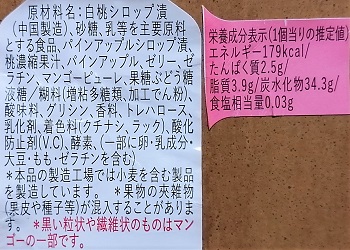 原材料名:白桃シロップ漬
(中国製造)、砂糖、乳等を主要原料
とする食品、パインアップルシロップ漬、
桃濃縮果汁、パインアップル、ゼリー、ゼ
ラチン、マンゴーピューレ、果糖ぶどう糖
液糖/糊料(増粘多糖類、加工でん粉)、
酸味料、グリシン、香料、トレハロース、
乳化剤、着色料(クチナシ、ラック)、酸化
防止剤(V.C)、酵素、(一部に卵・乳成分・
大豆・もも・ゼラチンを含む)
*本品の製造工場では小麦を含む製品
を製造しています。 *果物の夾雑物
(果皮や種子等)が混入することがありま
す。 *黒い粒状や繊維状のものはマン
ゴーの一部です。
栄養成分表示(1個当りの推定値)
エネルギー179kcal/
たんぱく質2.5g/
脂質3.9g/炭水化物34.3g/
食塩相当量0.03g